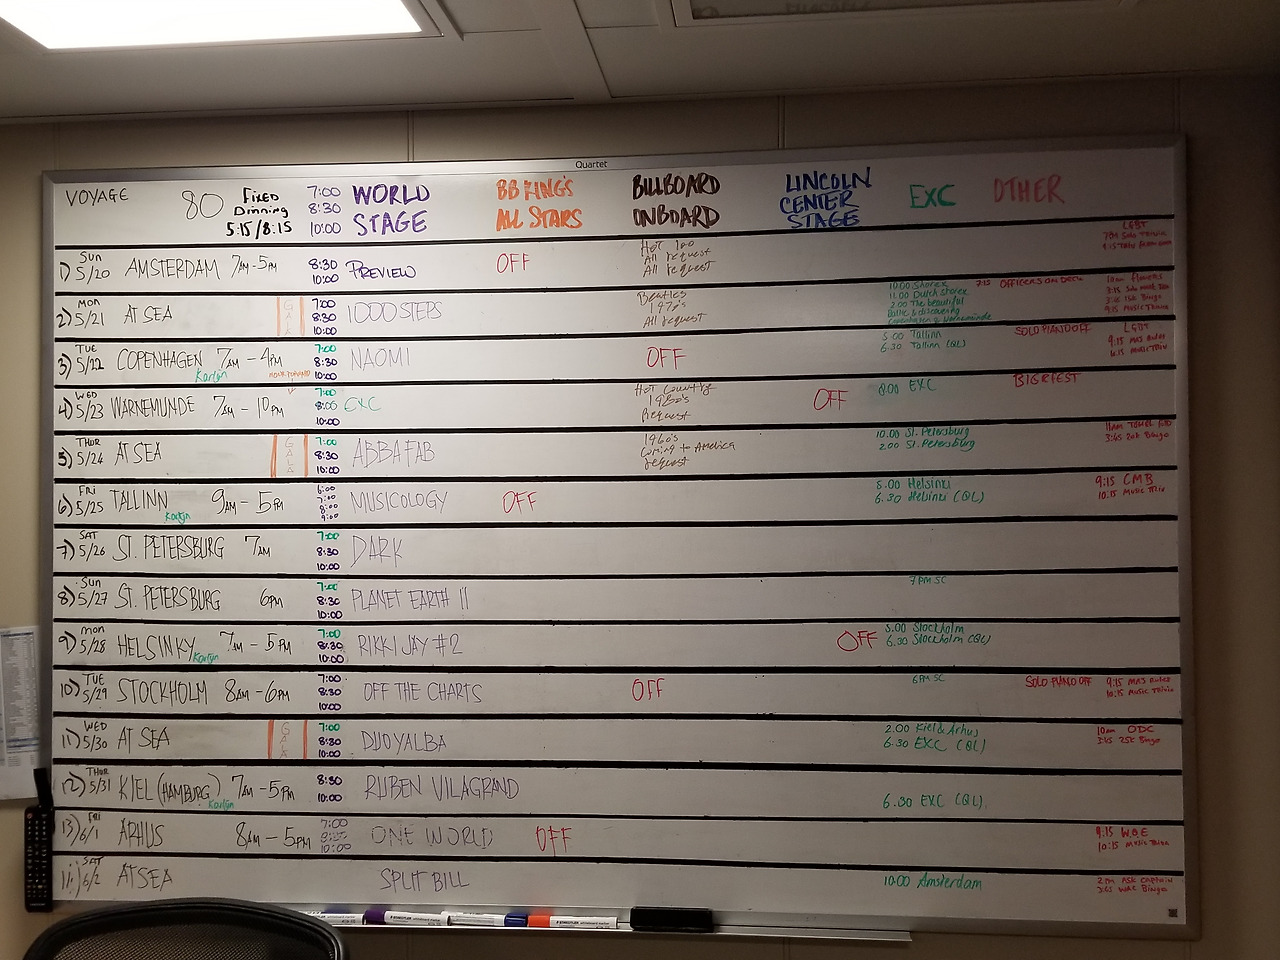 Quartet
VOYAGE 80 Fixed Dinning 5:15/8:15 7:00 8:30 10:00 WORLD STAGE BB KING'S ALL STARS BILLBOARD ONBOARD LINCOLN CENTER STAGE EXC OTHER
1) Sun 5/20 AMSTERDAM 7AM-5PM 8:30 10:00 PREVIEW OFF Hot 100 All request All request LGBT
2) MON 5/21 AT SEA GALA 7:00 8:30 10:00 1000 STEPS Beatles 1970's All request 10:00 Shorex 11:00 Dutch Shorex 2:00 The beautiful Baltic & discovering Copenhagen & Warnemünde 7:15 OFFICERS ON DECK 10am flowers
3) TUE 5/22 COPENHAGEN 7AM - 4PM Karlijn 7:00 8:30 10:00 NAOMI OFF 5:00 Tallinn 6:30 Tallinn (QL) SOLO PIANO OFF LGBT
4) WED 5/23 WARNEMUNDE 7AM - 10PM 7:00 8:00 10:00 EXC Hot Country 1980's Request OFF 8:00 EXC BIERFEST
5) THUR 5/24 AT SEA GALA 7:00 8:30 10:00 ABBA FAB 1960's Coming to America request 10:00 St. Petersburg 2:00 St. Petersburg
6) FRI 5/25 TALLINN Karlijn 9AM - 5PM 6:00 7:00 8:00 9:00 MUSICOLOGY OFF 5:00 Helsinki 6:30 Helsinki (QL) 9:15 CMB 10:15 Music Trivia
7) SAT 5/26 ST. PETERSBURG 7AM 7:00 8:30 10:00 DARK
8) Sun 5/27 ST. PETERSBURG 6PM 7:00 8:30 10:00 PLANET EARTH II 7PM SC
9) Mon 5/28 HELSINKY Karlijn 7AM - 5PM 7:00 8:30 10:00 RIKKI JAY #2 OFF 5:00 Stockholm 6:30 Stockholm (QL)
10) TUE 5/29 STOCKHOLM 8AM - 6PM 7:00 8:30 10:00 OFF THE CHARTS OFF 6PM SC SOLO PIANO OFF 9:15 10:15 Music Trivia
11) WED 5/30 AT SEA GALA 7:00 8:30 10:00 DUO YALBA 2:00 Kiel & Arhus 6:30 EXC (QL) 10am ODC 3:45 25K Bingo
12) THUR 5/31 KIEL (HAMBURG) Karlijn 7AM - 5PM 8:30 10:00 RUBEN VILAGRAND 6:30 EXC (QL)
13) FRI 6/1 ARHUS 8AM - 5PM 7:00 8:30 10:00 ONE WORLD OFF 9:15 10:15 Music Trivia
SAT 6/2 AT SEA SPLIT BILL 10:00 Amsterdam 2pm Ask Captain 3:45 Bingo